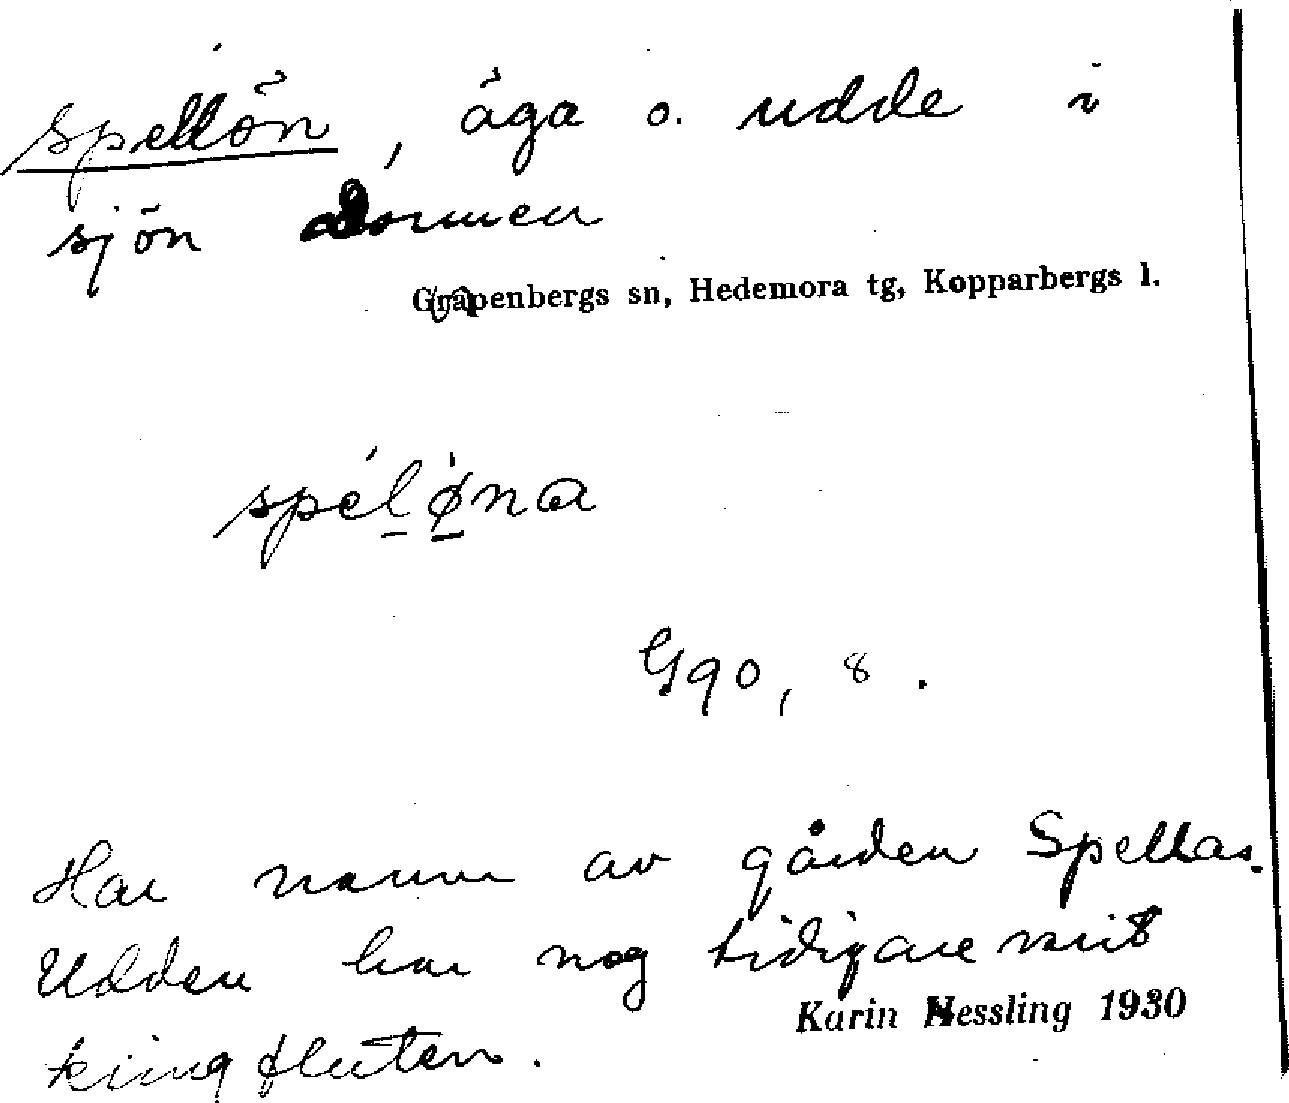 Spellön, äga o. udde i
sjön Dormen
Garpenbergs sn, Hedemora tg, Kopparbergs l.
spelöna
Ggo, 8.
Har namn av gården Spellas.
Udden har nog tidigare varit
kringfluten.
Karin Hessling 1930